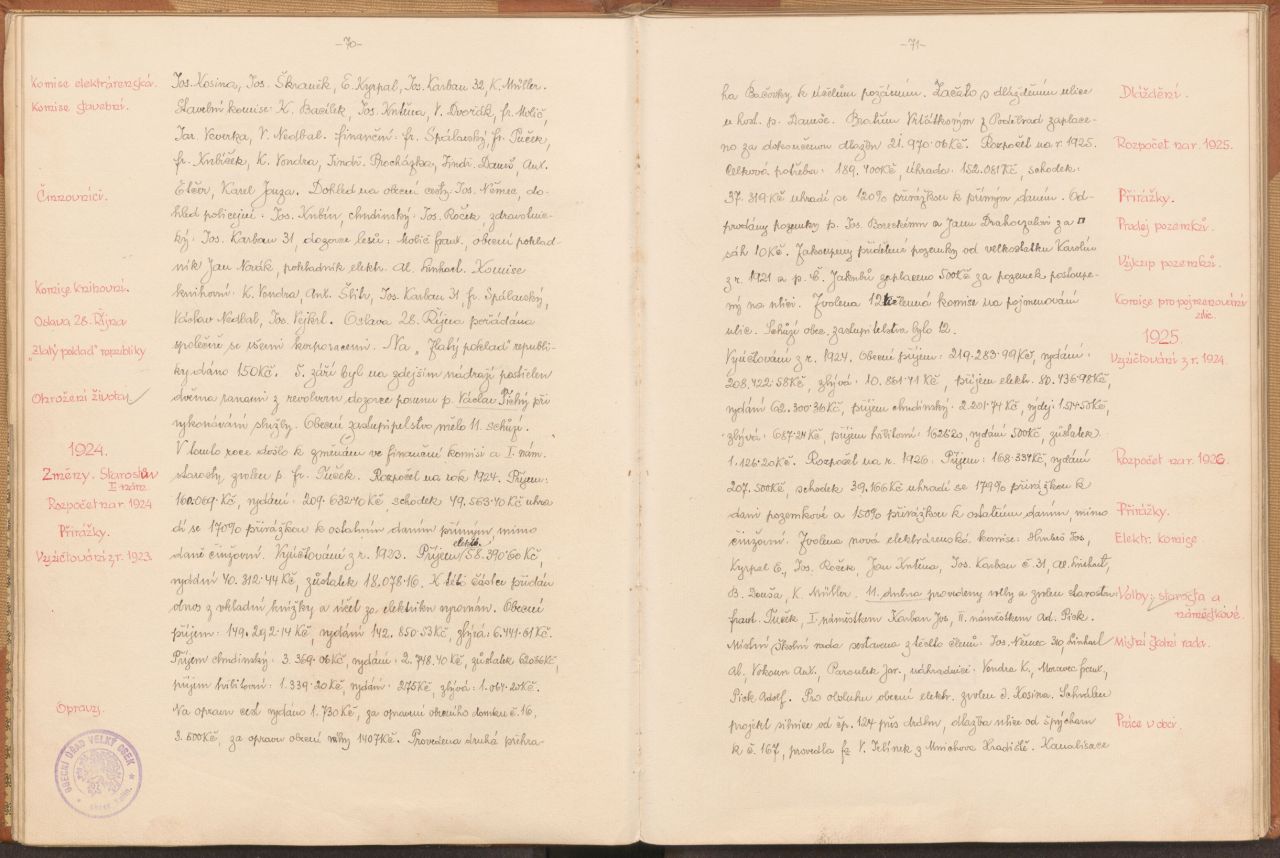 -70-
Komise elektrárenská.
Jos. Kosina, Jos. Škraněk, E. Kyrpal, Jos. Karban 32, K. Müller.
Komise stavební.
Stavební komise: K. Basílek, Jos. Kntina, V. Dvořák, fr. Molič,
Jar. Veverka, V. Nedbal. finanční: fr. Spálavský, fr. Tuček,
fr. Knbíček, K. Vondra, Jindř. Procházka, Jindř. Daneš, Ant.
Činovníci.
Karel Jouza. Dohled na obecní cesty: Jos. Němec, do-
hled policejní: Jos. Knbín, chudinský: Jos. Roček, zdravotnic-
ký: Jos. Karban 31, dozorce lesů: Molič frant., obecní poklad-
ník Jan Novák, pokladník elektr. Al. Linhart. Komise
Komise knihovní.
knihovní: K. Vondra, Ant. Jos. Karban 31, fr. Spálavský,
Oslava 28. Října
Václav Nedbal, Jos. Vejkrl. Oslava 28. Října pořádána
"Zlatý poklad" republiky
společně se všemi korporacemi. Na „Zlatý poklad" republi-
ky dáno 150Kč. 5. září byl na zdejším nádraží postřelen
Ohrožení života
dvěma ranami z revolveru dozorce posunu p. Václav Píchý při
vykonávání služby. Obecní zastupitelstvo mělo 11 schůzí.
1924.
V tomto roce došlo k změnám ve finanční komisi a I. nám.
Změny. Starostův
I. nám.
starosty, zvolen p. fr. Tuček. Rozpočet na rok 1924. Příjem:
Rozpočet na r. 1924
160.069 Kč, vydání: 209.632·40 Kč, schodek 49.563·40 Kč uhra-
Přirážky.
dí se 170% přirážkou k ostatním daním přímým, mimo
elektr.
Vyúčtování z r. 1923.
daně činžovní. Vyúčtování z r. 1933. Příjem 58.390·60 Kč,
vydání 40.312·44 Kč, zůstatek 18.078·16. K této částce přidán
obnos z vkladní knížky a účet za elektriku vyrovnán. Obecní
příjem: 149.292·14 Kč, vydání 142.850·53 Kč, zbývá: 6.441·61 Kč.
Příjem chudinský: 3.369·06 Kč, vydání: 2.748.40 Kč, zůstatek 620·66 Kč,
příjem hřbitovní: 1.339·20 Kč, vydání: 275 Kč, zbývá: 1.064·20 Kč.
Opravy.
Na opravu cest vydáno 1.730 Kč, za opravu obecního domku č. 16,
3.600 Kč, za opravu obecní váhy 1407 Kč. Provedena druhá přehra-
OBECNÍ ÚŘAD VELKÝ OSEK
-71-
ha Bačovky k účelům požárním. Začato s dlážděním ulice
Dláždění.
u host. p. Daneše. Bratřím Vrštátkovým z Poděbrad zaplace-
no za dokončenou dlažbu 21.970·06 Kč. Rozpočet na r. 1925.
Rozpočet na r. 1925.
Celková potřeba: 189.400 Kč, úhrada: 152.081 Kč, schodek:
37.319 Kč uhradí se 120% přirážkou k přímým daním. Od-
Přirážky.
prodány pozemky p. Jos. Boreckému a Janu Drahozalovi za □
Prodej pozemků.
sáh 10 Kč. Zakoupeny přidělené pozemky od velkostatku Karolín
Výkup pozemků.
z r. 1921 a p. Č. Jakubů zaplaceno 500 Kč za pozemek postoupe-
ný na ulici. Zvolena 12ti členná komise na pojmenování
Komise pro pojmenování
ulic.
ulic. Schůzí obec. zastupitelstva bylo 12.
1925.
Vyúčtování z r. 1924. Obecní příjem: 219·283·99 Kč, vydání:
Vyúčtování z r. 1924.
208.422·58 Kč, zbývá: 10.861·41 Kč, příjem elektr. 80.436·98 Kč,
vydání 62.300·36 Kč, příjem chudinský: 2.201·74 Kč, výdej: 1.514·50 Kč,
zbývá: 687·24 Kč, příjem hřbitovní: 1626·20, vydání 500 Kč, zůstatek
1.126·20 Kč. Rozpočet na r. 1926: Příjem: 168·334 Kč, vydání
Rozpočet na r. 1926.
207.500 Kč, schodek 39.166 Kč uhradí se 179% přirážkou k
dani pozemkové a 150% přirážkou k ostatním daním, mimo
Přirážky.
činžovní. Zvolena nová elektrárenská komise: Jos.,
Elektr. komise.
Kyrpal E., Jos. Roček, Jan Kntina, Jos. Karban č. 31, Al. Linhart,
B. Douša, K. Müller. 11. dubna provedeny volby a zvolen starostou:
Volby: starosta a
náměstkové.
frant. Tuček, I. náměstkem Karban Jos., II. náměstkem Ad. Pick.
Místní školní rada sestavena z těchto členů: Jos. Němec 310, Linhart
Místní školní rada.
Al., Vokoun Ant., Paroulek Jar., náhradníci: Vondra K., Moravec frant.,
Pick Adolf. Pro obsluhu obecní elektr. zvolen J. Kosina. Schválen
projekt silnice od čp. 124 přes dráhu, dlažba ulice od špýcharu
Práce v obci.
k č. 167, provedla fa V. Jelínek z Mnichova Hradiště. Kanalisace